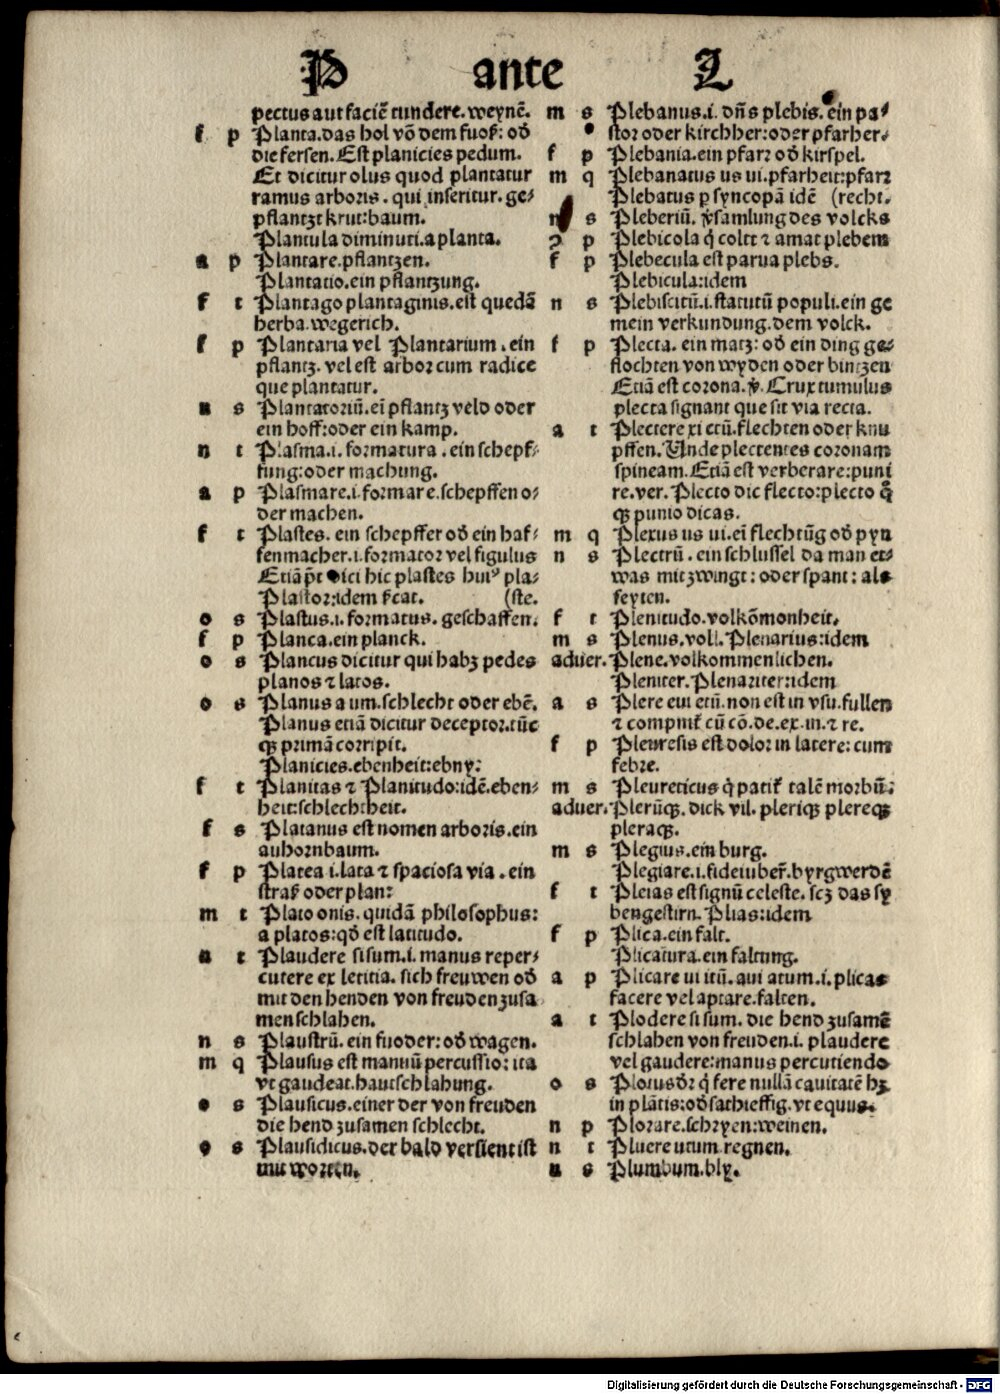 P ante L
pectus aut faciē tundere. weynē.
f p Planta. das hol vō dem fuoß: oď
die fersen. Est planicies pedum.
Et dicitur olus quod plantatur
ramus arboris. qui inseritur. ge⸗
pflantzt krut: baum.
Plantula diminuti. a planta.
a p Plantare. pflantzen.
Plantatio. ein pflantzung.
f t Plantago plantaginis. est quedā
herba. wegerich.
f p Plantaria vel Plantarium. ein
pflantz. vel est arbor cum radice
que plantatur.
n s Plantatoriū. eī pflantz veld oder
ein hoff: oder ein kamp.
n t Plasma. i. formatura. ein schepf⸗
fung: oder machung.
a p Plasmare. i. formare. schepffen o⸗
der machen.
f t Plastes. ein schepffer oď ein haf⸗
fenmacher. i. formator vel figulus
Etiā dici hic plastes huiꝰ pla⸗
Plastor: idem (ste.
o s Plastus. i. formatus. geschaffen.
f p Planca. ein planck.
o s Plancus dicitur qui habꝫ pedes
planos ⁊ latos.
o s Planus a um. schlecht oder ebē.
Planus etiā dicitur deceptor. tūc
qꝫ primā corripit.
Planicies. ebenheit: ebny:
f t Planitas ⁊ Planitudo: idē. eben⸗
heit: schlechtheit.
f s Platanus est nomen arboris. ein
auhornbaum.
f p Platea i. lata ⁊ spaciosa via. ein
straß oder plan:
m t Plato onis. quidā philosophus:
a platos: qď est latitudo.
n t Plaudere si sum. i. manus reper⸗
cutere ex leticia. sich freuwen oď
mit den henden von freuden zusa
men schlahen.
n s Plaustrū. ein fuoder: oď wagen.
m q Plausus est manuū percussio: ita
vt gaudeat. hautschlahung.
o s Plausicus. einer der von freuden
die hend zusamen schlecht.
o s Plausidicus. der bald versient ist
mit worten.
m s Plebanus. i. dn̄s plebis. ein pa⸗
stor oder kirchher: oder pfarher.
f p Plebania. ein pfarr oď kirspel.
m q Plebanatus us ui. pfarheit: pfarr
Plebatus ꝑ syncopā idē (recht.
n s Pleberiū. v̓samlung des volcks
p Plebicola q̇ colit ⁊ amat plebem
f p Plebecula est parua plebs.
Plebicula: idem
n s Plebiscitū. i. statutū populi. ein ge
mein verkundung. dem volck.
f p Plecta. ein matz: oď ein ding ge⸗
flochten von wyden oder bintzen
Etiā est corona. v̓. Crux tumulus
plecta signant que sit via recta.
a t Plectere xi etū. flechten oder knu
pffen. Unde plectentes coronam
spineam. Etiā est verberare: puni
re. ver. Plecto dic flecto: plecto
qꝫ punio dicas.
m q Plexus us ui. eī flechtūg oď pyn
n s Plectrū. ein schlussel da man et⸗
was mit zwingt: oder spant: als
seyten.
f t Plenitudo. volkōmonheit.
m s Plenus. voll. Plenarius: idem
aduer. Plene. volkommenlichen.
Pleniter. Plenariter: idem
a s Plere eui etū. non est in vsu. fullen
⁊ componit̉ cū cō. de. ex. in. ⁊ re.
f p Pleuresis est dolor in latere: cum
febre.
m s Pleureticus q̇ patit̉ talē morbū:
aduer. Plerūqꝫ. dick vil. pleriqꝫ plereqꝫ
pleraqꝫ.
m s Plegius. ein burg.
Plegiare. i. fideiuber̄. byrgwerdē
f t Pleias est signū celeste. scꝫ das sy
bengestirn. Plias: idem
f p Plica. ein falt.
Plicatura. ein faltung.
a p Plicare ui itū. aui atum. i. plicas
facere vel aptare. falten.
a t Plodere si sum. die hend zusamē
schlahen von freuden. i. plaudere
vel gaudere: manus percutiendo
o s Plotus dr̄ q̇ fere nullā cauitatē hꝫ
in plātis: oď sathieffig. vt equus.
n p Plorare. schryen: weinen.
n t Pluere utum. regnen.
n s Plumbum. bly.
Digitalisierung gefördert durch die Deutsche Forschungsgemeinschaft - DFG